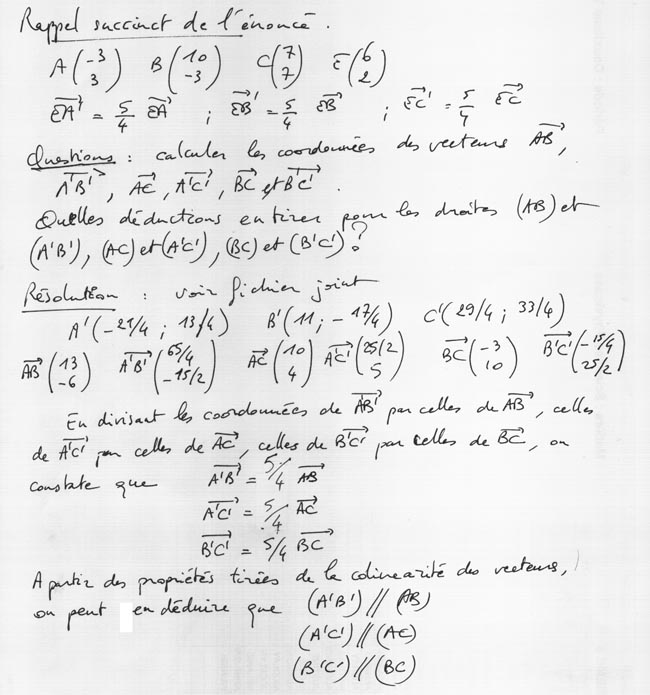 Rappel succinct de l'énoncé.
A(-3 3) B(10 -3) C(7 7) E(6 2)
EA' = 5/4 EA ; EB' = 5/4 EB ; EC' = 5/4 EC
Questions : calculer les coordonnées des vecteurs AB,
A'B', AC, A'C', BC et B'C'.
Quelles déductions en tirer pour les droites (AB) et
(A'B'), (AC) et (A'C'), (BC) et (B'C')?
Résolution : voir fichier joint
A'(-21/4 ; 13/4) B'(11 ; -17/4) C'(29/4 ; 33/4)
AB(13 -6) A'B'(65/4 -15/2) AC(10 4) A'C'(25/2 5) BC(-3 10) B'C'(-15/4 25/2)
En divisant les coordonnées de A'B' par celles de AB, celles
de A'C' par celles de AC, celles de B'C' par celles de BC, on
constate que A'B' = 5/4 AB
A'C' = 5/4 AC
B'C' = 5/4 BC
A partir des propriétés tirées de la colinéarité des vecteurs,
on peut en déduire que (A'B') // (AB)
(A'C') // (AC)
(B'C') // (BC)